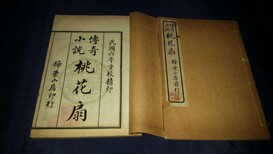 民國六年重校精印
傳奇
小說
桃花扇
掃葉山房印行
桃花扇
掃葉山房發行